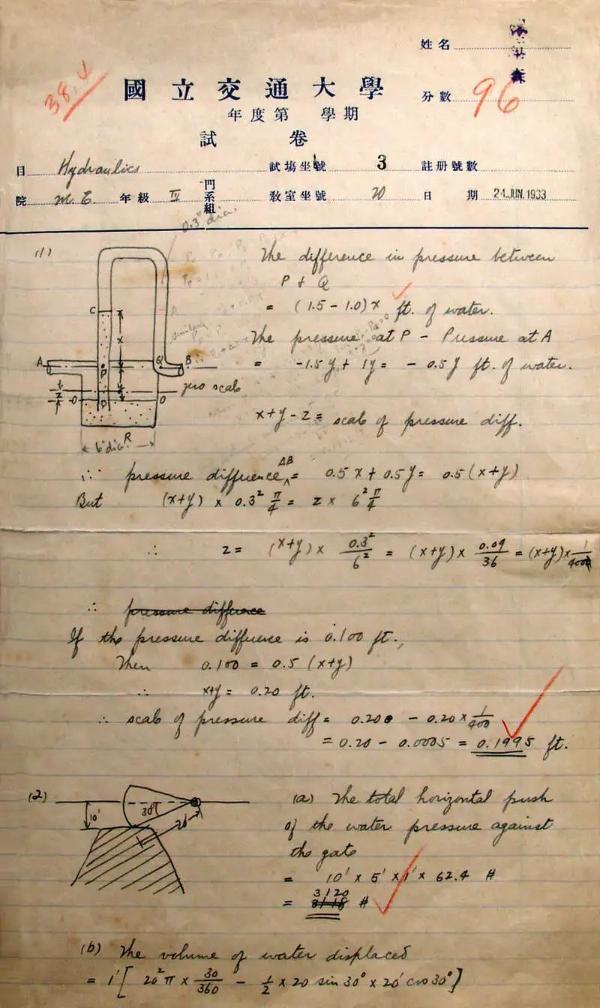 姓名
38,4
國立交通大學
分數 96
年度第 學期
試 卷
目 Hydraulics 試場坐號 3 註册號數
院 M.E. 年級 IV 門系組 教室坐號 20 日期 24 JUN. 1933
0.3" dia.
(1)
The difference in pressure between
P & Q
= (1.5 - 1.0)x ft. of water.
The pressure at P - Pressure at A
= -1.5y + 1y = -0.5y ft. of water.
x+y-z = scale of pressure diff.
C
x
A
P
Q
B
y
zero scale
z
O
O
D
R
6" dia.
∴ pressure difference AB = 0.5x + 0.5y = 0.5(x+y)
But (x+y) × 0.3² π/4 = z × 6² π/4
∴ z = (x+y) × 0.3²/6² = (x+y) × 0.09/36 = (x+y) × 1/400
∴ pressure difference
If the pressure difference is 0.100 ft.,
Then 0.100 = 0.5 (x+y)
∴ x+y = 0.20 ft.
∴ scale of pressure diff = 0.200 - 0.20 × 1/400
= 0.20 - 0.0005 = 0.1995 ft.
(2)
10'
30°
20'
(a) The total horizontal push
of the water pressure against
the gate
= 10' × 5' × 1' × 62.4 #
= 3120 #
(b) The volume of water displaced
= 1' [ 20² π × 30/360 - 1/2 × 20 sin 30° × 20' cos 30° ]